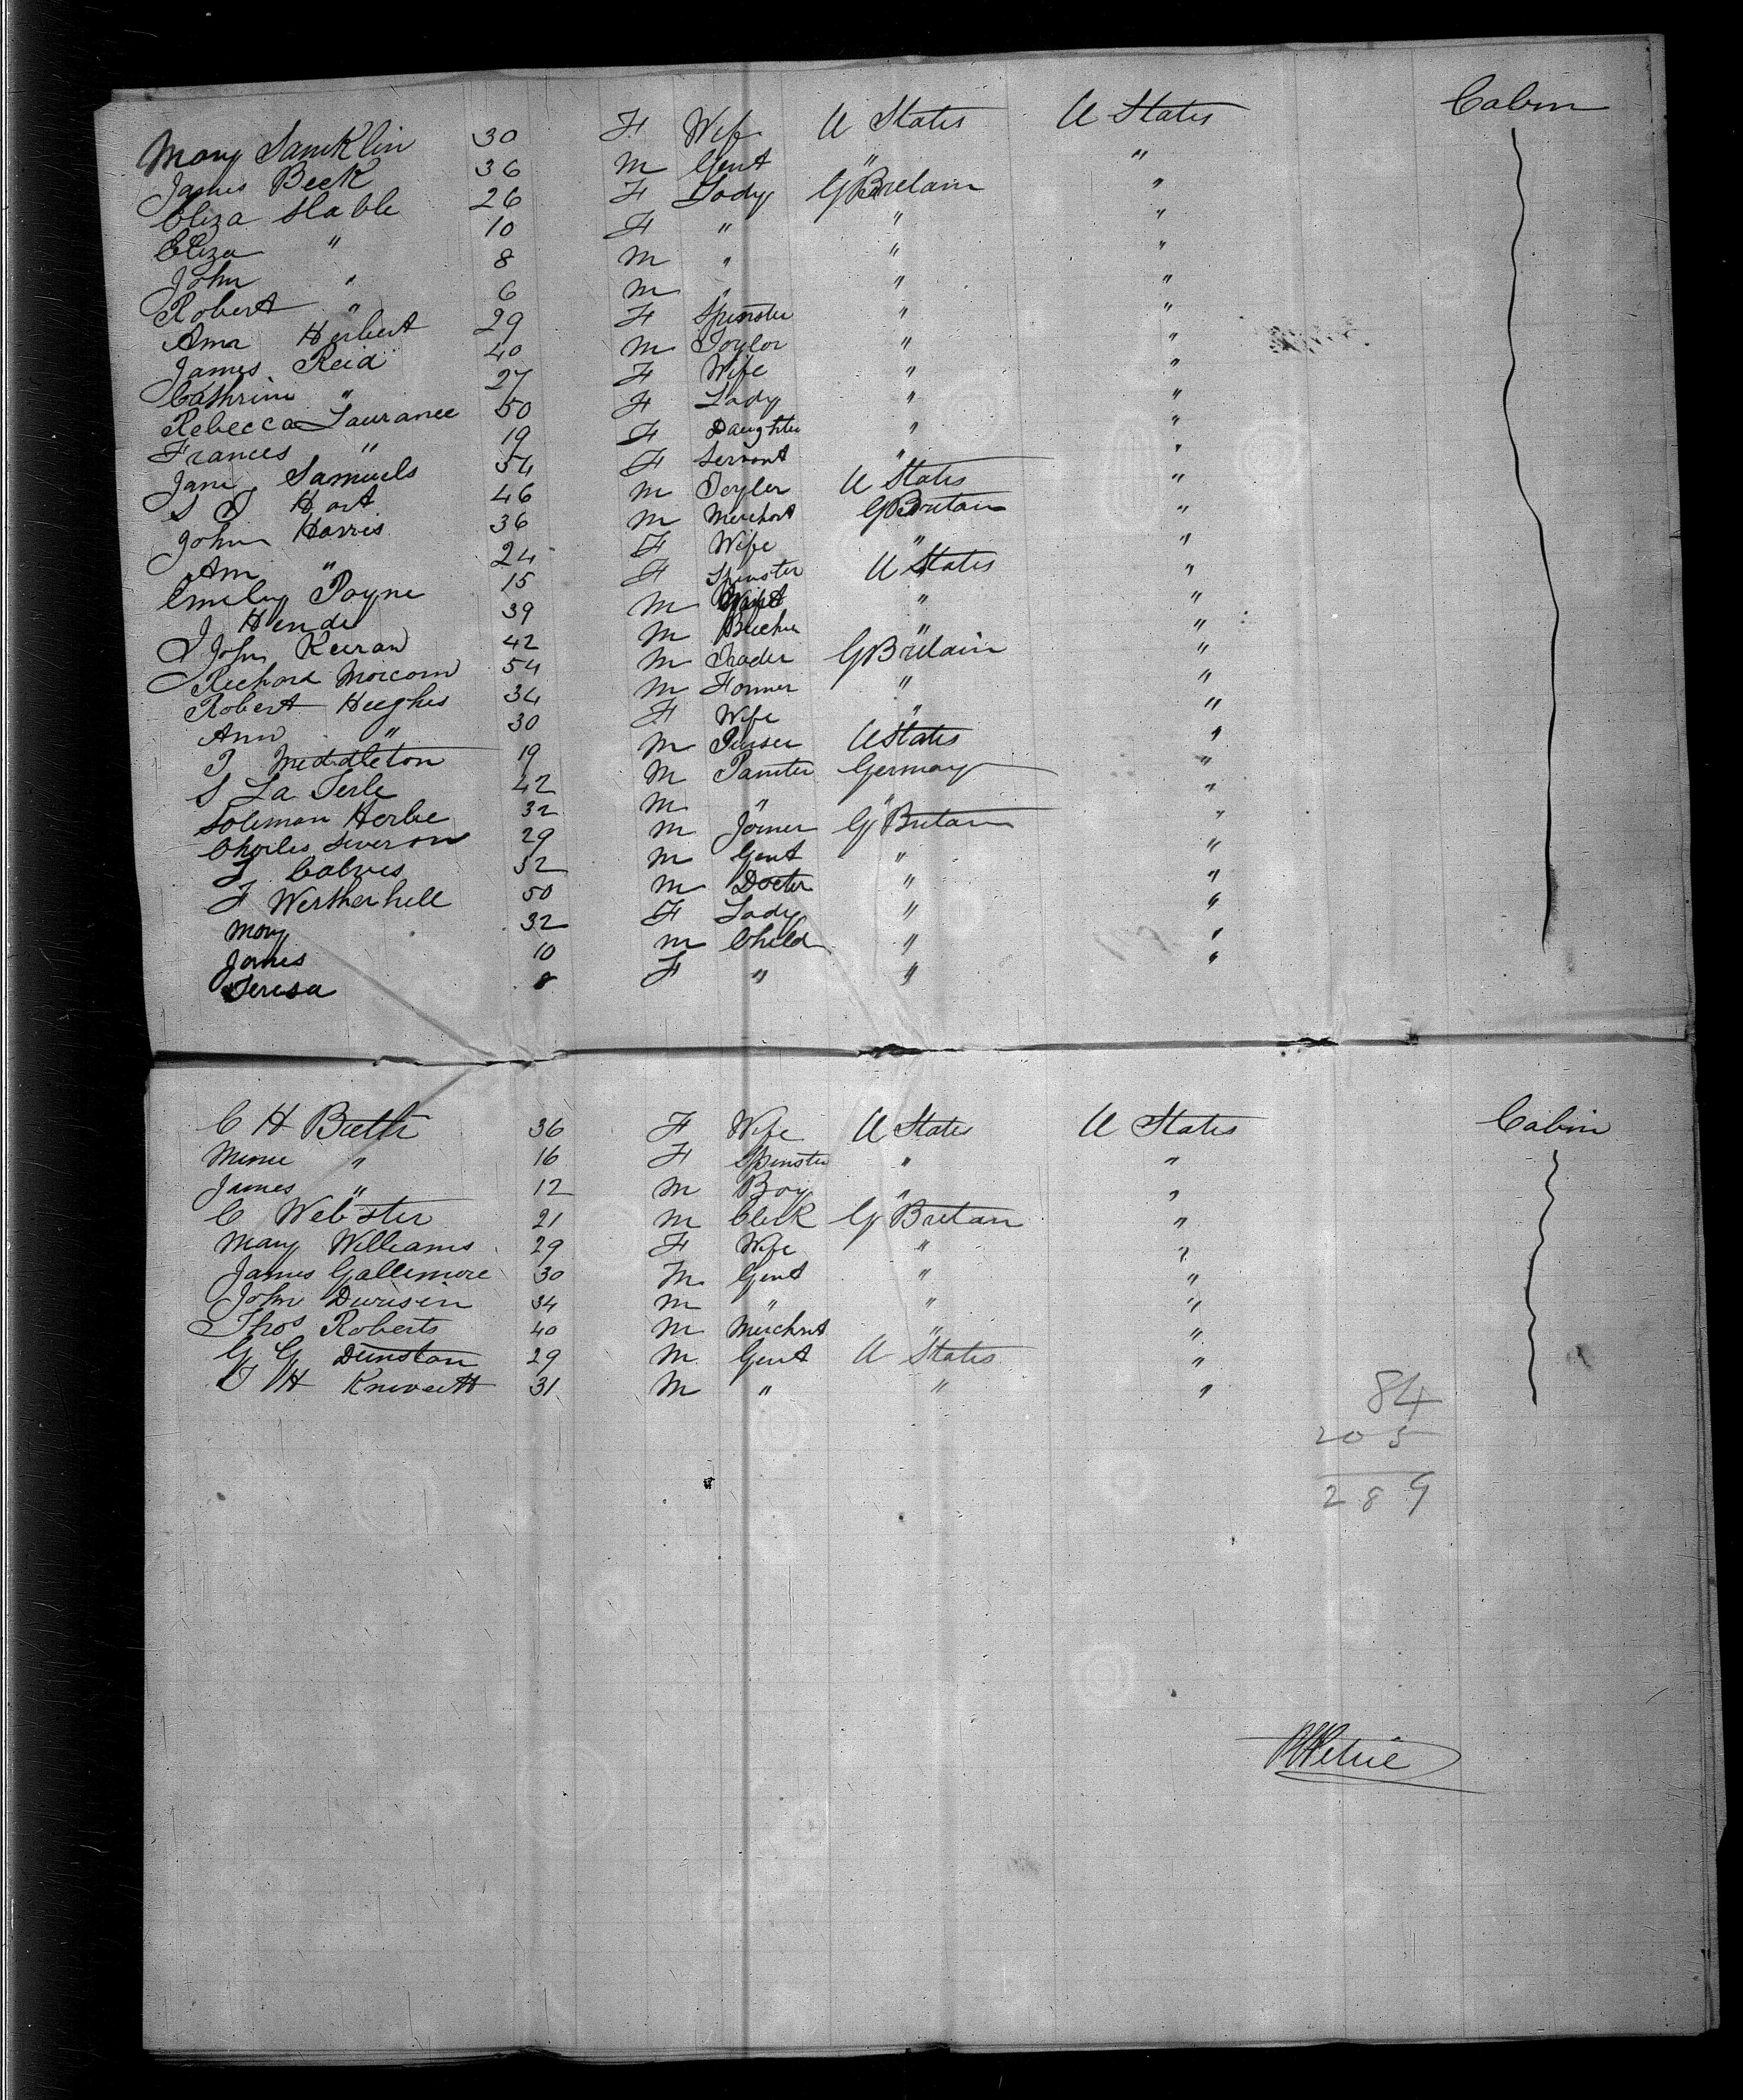 Mary 30 F Wife U States U States Cabin
James Beck 36 M Gent " "
Eliza Stable 26 F Lady G Bretain "
Eliza " 10 F " " "
John " 8 M " " "
Robert " 6 M " " "
Ann Herbert 29 F Spinster " "
James Reid 40 M Taylor " "
Cathrine " 27 F Wife " "
Rebecca Laurance 50 F Lady " "
Frances " 19 F Daughter " "
Jane Samuels 54 F Servant " "
S J Hart 46 M Teyler U States "
John Harris 36 M Merchant G Bretain "
Ann " 24 F Wife " "
Emeley Payne 15 F Spinster U States "
J 39 M " "
John Keiran 42 M " "
Richard Morcom 54 M Trader G Bretain "
Robert Heeghes 34 M Farmer " "
Ann " 30 F Wife " "
J Meddleton 19 M Purser U States "
S La Serle 42 M Painter Germany "
Soleman 32 M " " "
Charles 29 M Joiner G Bretan "
52 M Gent " "
F 50 M Docter " "
Mary 32 F Lady " "
James 10 M Child " "
Teresa 8 F " " "
C H 36 F Wife U States U States Cabin
Minie " 16 F Spinster " "
James " 12 M Boy " "
C Webster 21 M Clerk G Bretan "
Mary Williams 29 F Wife " "
James Gallemore 30 M Gent " "
John 34 M " " "
Thos Roberts 40 M Merchnt " "
G G Dunstan 29 M Gent U States "
H 31 M " " "
84
205
289